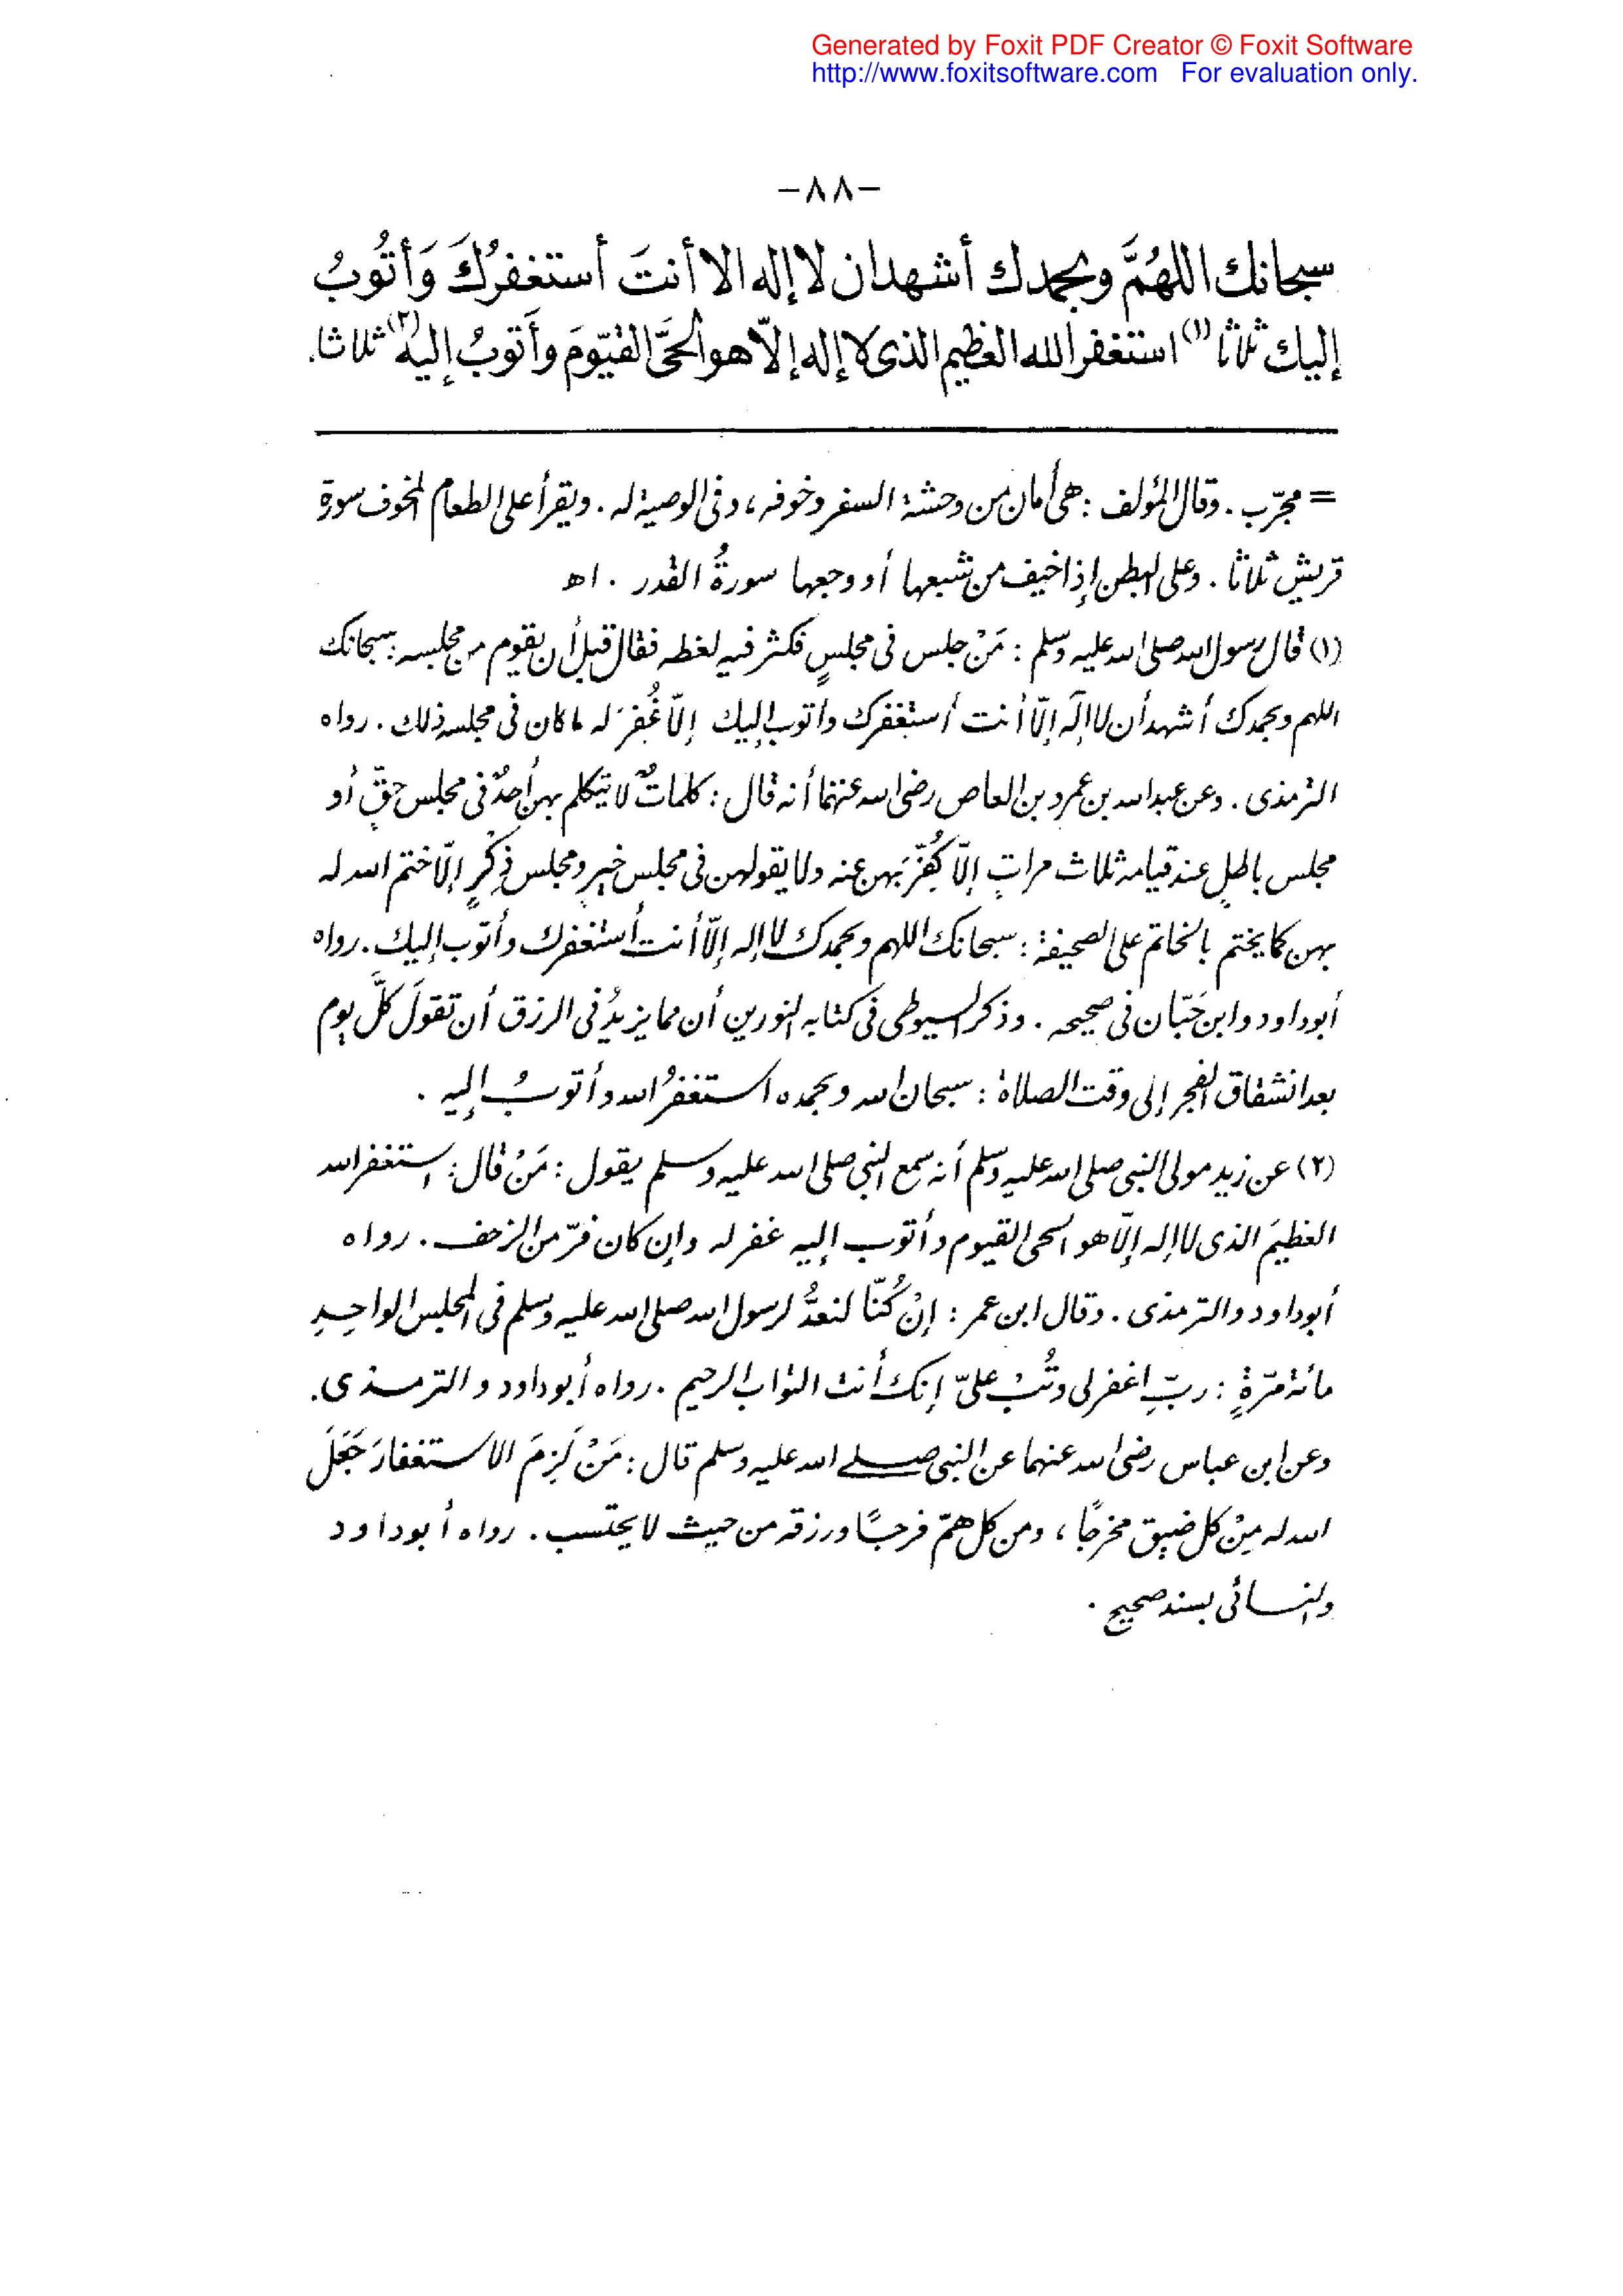 Generated by Foxit PDF Creator © Foxit Software
http://www.foxitsoftware.com   For evaluation only.
-٨٨-
سبحانك اللهُمَّ وبحمدك أشهد ان لا إله الا أنتَ أستغفرُكَ وَأتُوبُ
إليك ثلاثا (١) استغفر الله العظيم الذى لا إله إلاّ هو الحَىَّ القيّومَ وأَتوبُ إليه (٢) ثلاثا.
= مجرّب . وقال المؤلف : هى أمان من وحشة السفر وخوفه ، وفى الوصية له . ويقرأ على الطعام المخوف سورة
قريش ثلاثا . وعلى البطن إذا خيف من شبعها أو وجعها سورةُ القدر . اهـ
(١) قال رسول الله صلى الله عليه وسلم : مَنْ جلس فى مجلسٍ فكثر فيه لغطه فقال قبل أن يقوم من مجلسه : سبحانك
اللهم وبحمدك أشهد أن لا إلَه إلاّ أنت أستغفرك وأتوب إليك إلاّ غُفِرَ له ما كان فى مجلسه ذلك . رواه
الترمذى . وعن عبد الله بن عمرو بن العاص رضى الله عنهما أنه قال : كلماتٌ لا يتكلم بهن أحدٌ فى مجلس حقٍّ أو
مجلس باطلٍ عند قيامه ثلاث مراتٍ إلاّ كُفِّرَ بهن عنه ولا يقولهن فى مجلس خيرٍ ومجلس ذِكْرٍ إلاّ ختم الله له
بهن كما يختم بالخاتم على الصحيفة : سبحانك اللهم وبحمدك لا إله إلاّ أنت أستغفرك وأتوب إليك . رواه
أبو داود وابن حَبّان فى صحيحه . وذكر السيوطى فى كتابه النورين أن مما يزيدُ فى الرزق أن تقولَ كلَّ يوم
بعد انشقاق الفجر إلى وقت الصلاة : سبحان الله وبحمده استغفرُ الله وأتوبُ إليه .
(٢) عن زيد مولى النبى صلى الله عليه وسلم أنه سمع النبى صلى الله عليه وسلم يقول : مَنْ قال : استغفر الله
العظيمَ الذى لا إله إلاّ هو الحى القيوم وأتوب إليه غفر له وإن كان فرّ من الزحف . رواه
أبو داود والترمذى . وقال ابن عمر : إنْ كُنّا لنعدُّ لرسول الله صلى الله عليه وسلم فى المجلس الواحِدِ
مائة مَرّةٍ : ربِّ اغفر لى وتُبْ علىّ إنك أنت التواب الرحيم . رواه أبو داود والترمذى .
وعن ابن عباس رضى الله عنهما عن النبى صلى الله عليه وسلم قال : مَنْ لَزِمَ الاستغفارَ جَعَلَ
الله له مِنْ كل ضيق مخرجًا ، ومن كل همّ فرجًا ورزقه من حيث لا يحتسب . رواه أبو داود
والنسائى بسند صحيح .